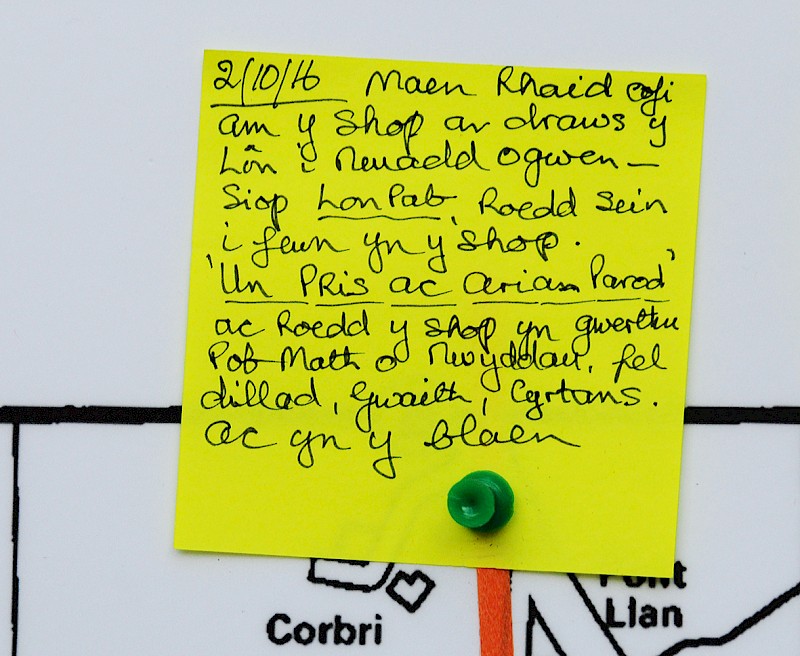 2/10/16 Maen Rhaid cofi
am y Shop ar draws y
Lôn i Neuadd Ogwen –
Siop Lon Pab, Roedd sein
i fewn yn y shop.
'Un PRis ac arian Parod'
ac Roedd y shop yn gwerthu
Pob Math o Nwyddau, fel
dillad, Gwaith, Cyrtans.
ac yn y blaen
Corbri
Pont
Llan